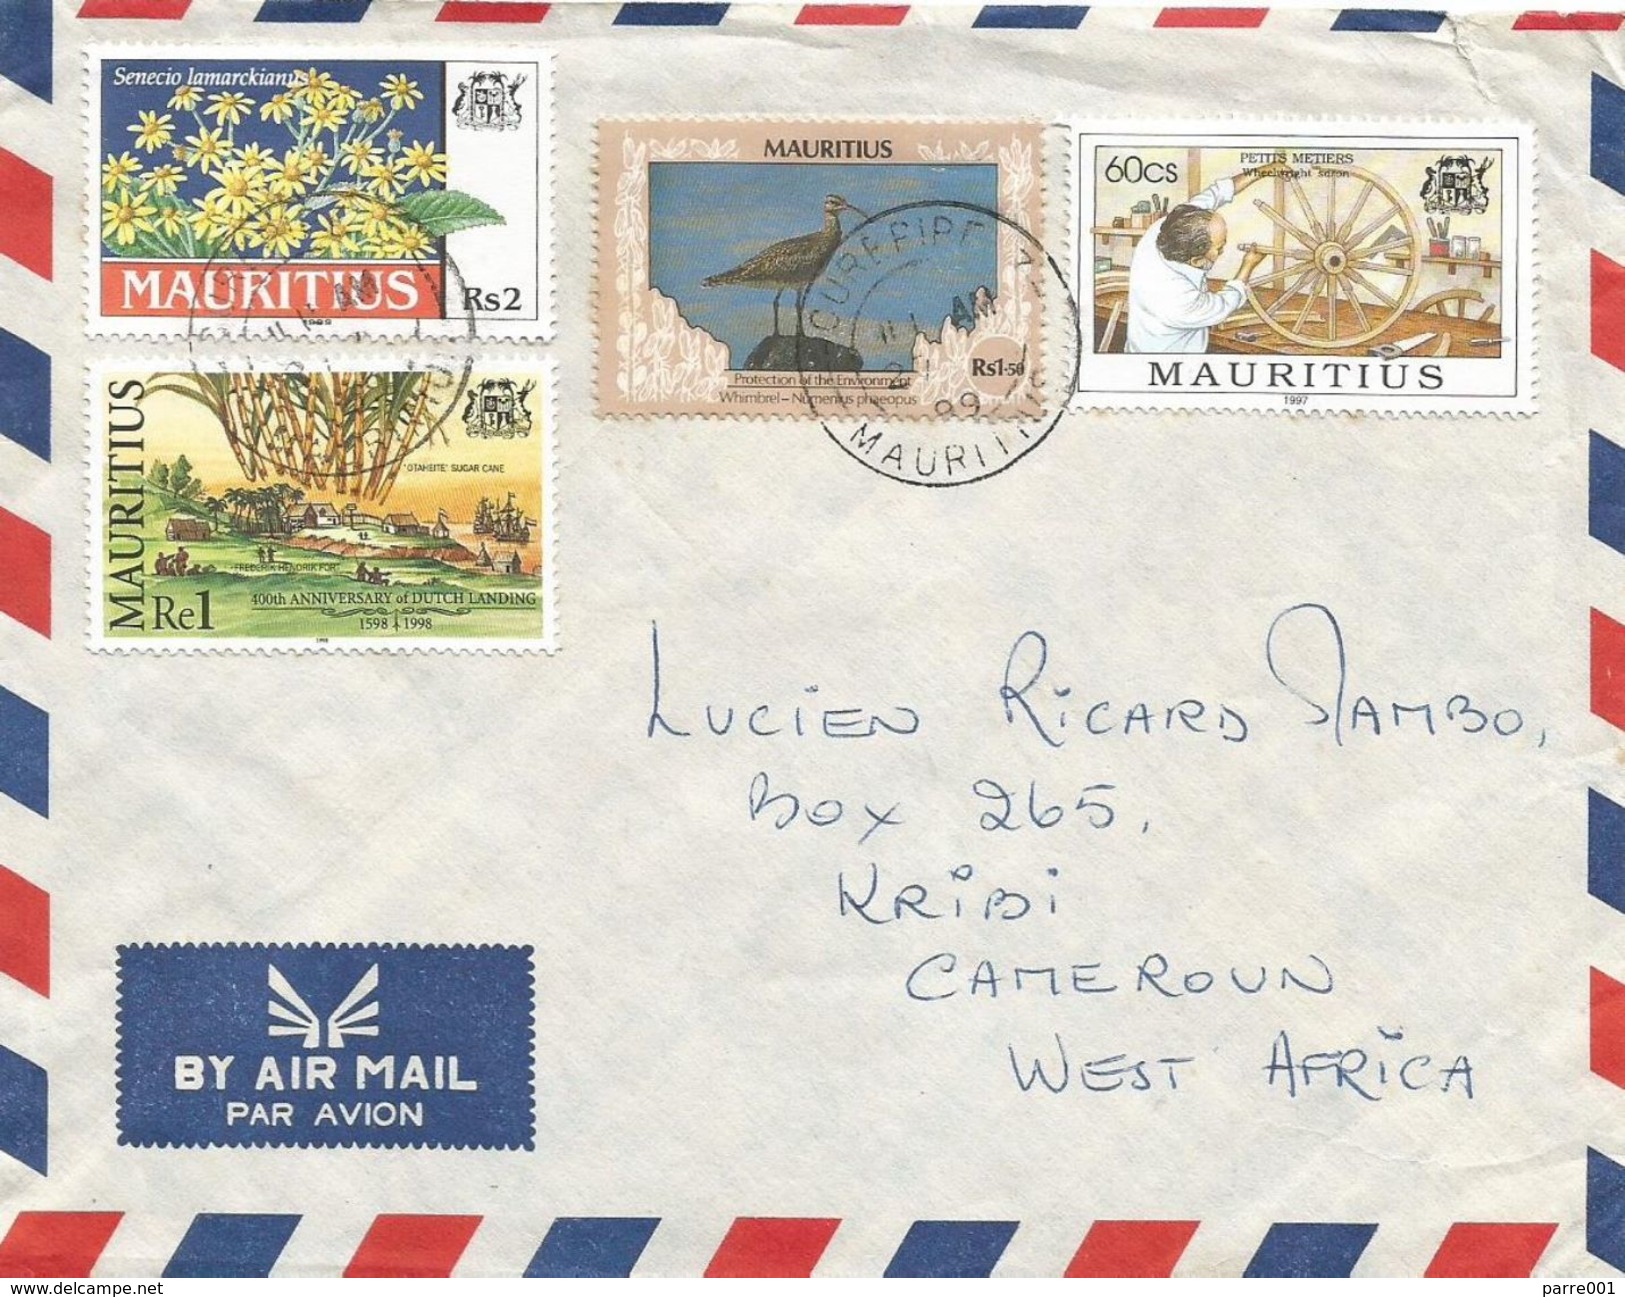 Senecio lamarckianus
MAURITIUS
Rs2
1999
MAURITIUS
'OTAHEITE' SUGAR CANE
"FREDERIK HENDRIK FORT"
400th ANNIVERSARY of DUTCH LANDING
1598 1998
Re1
1998
MAURITIUS
Rs1.50
Protection of the Environment
Whimbrel – Numenius phaeopus
CUREPIPE
AM
21
99
MAURITIUS
60CS
PETITS METIERS
Wheelwright
MAURITIUS
1997
LUCIEN RICARD
BOX 265,
KRIBI
CAMEROUN
WEST AFRICA
BY AIR MAIL
PAR AVION
parre001